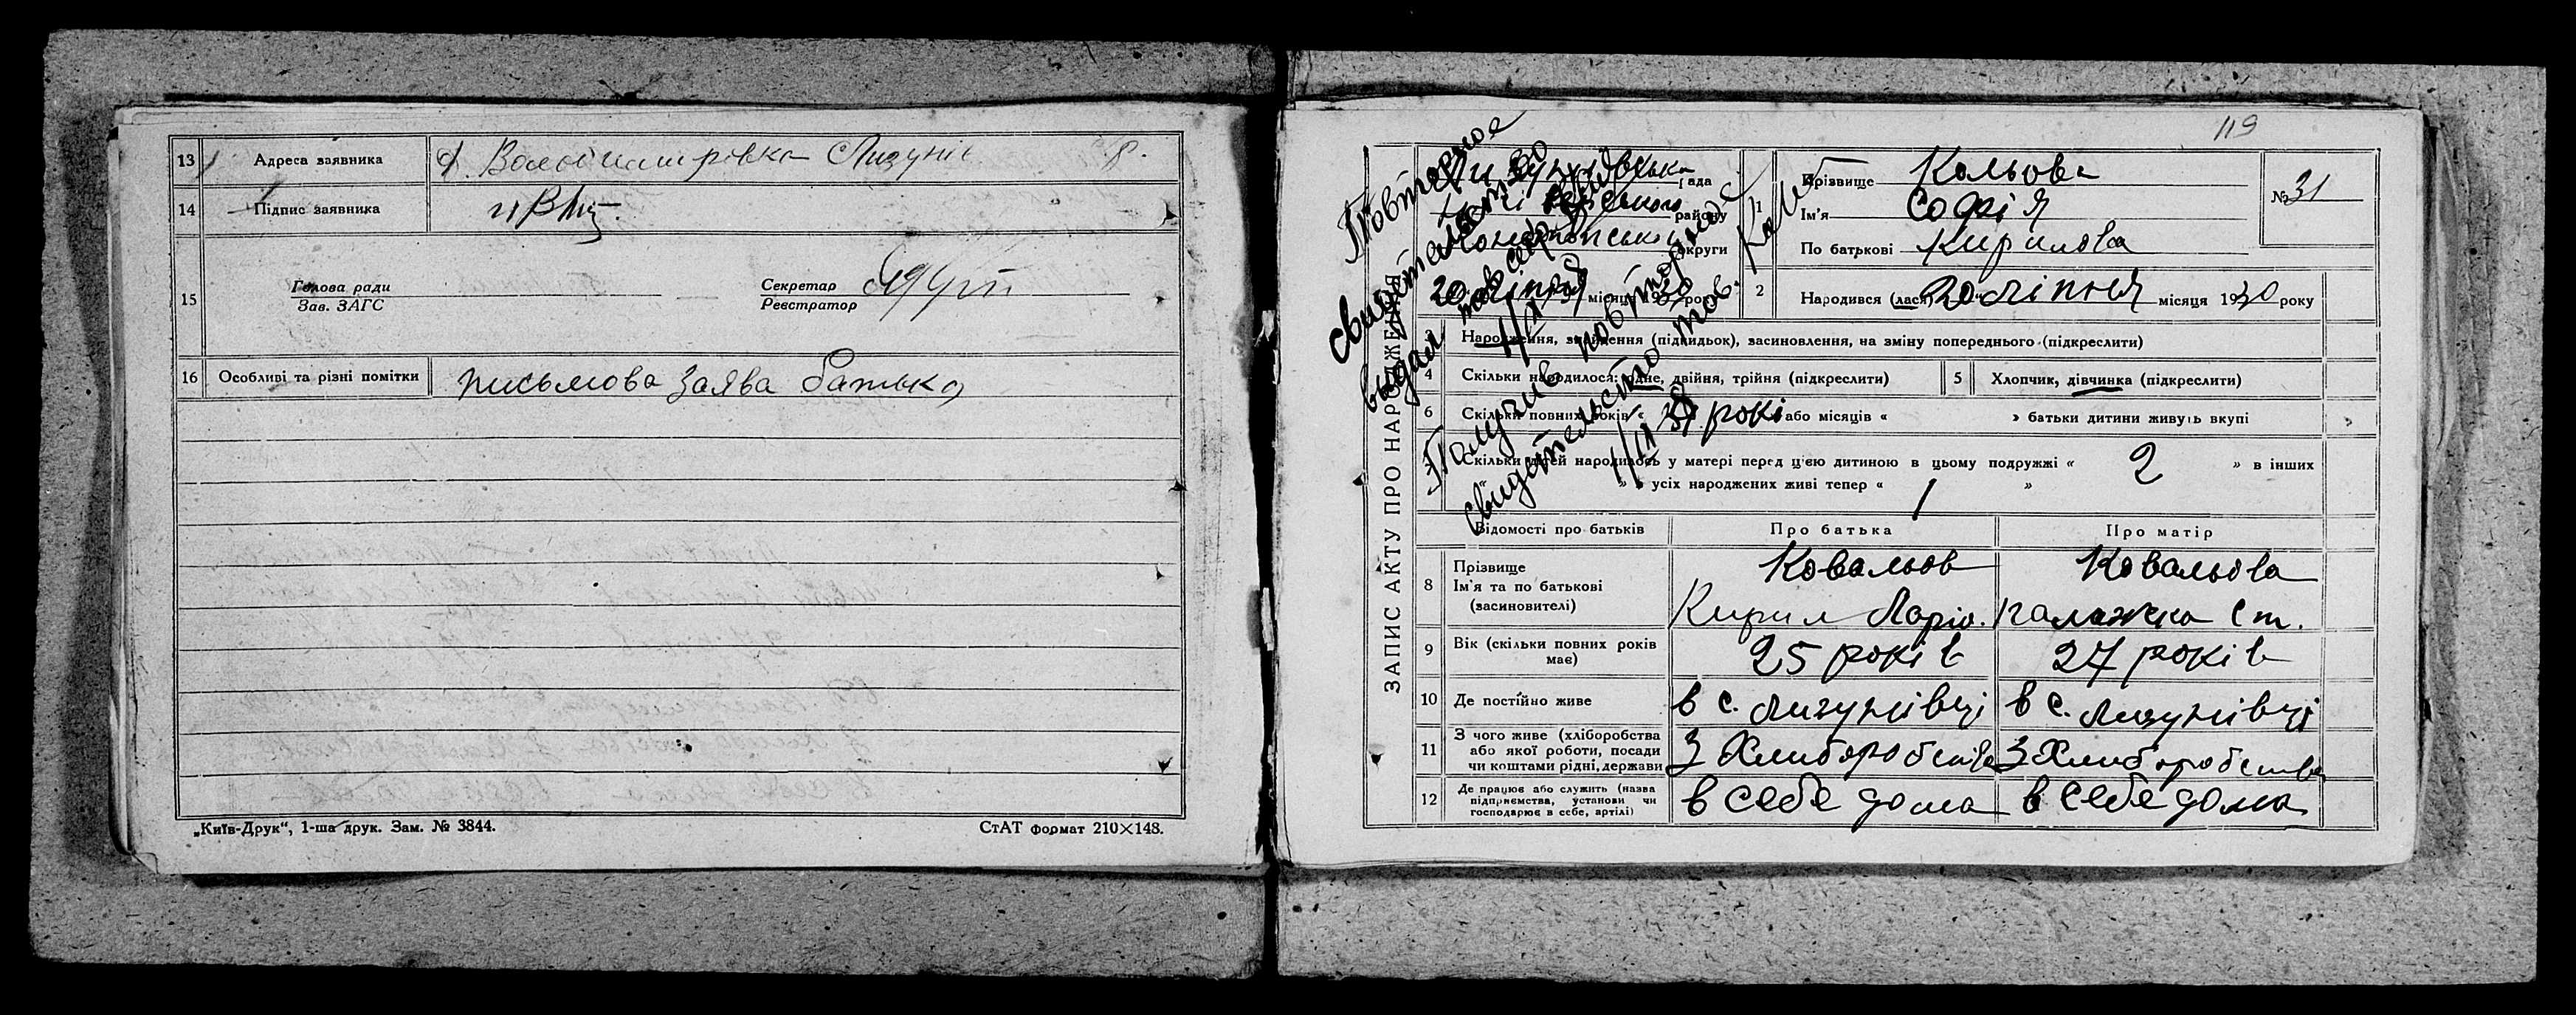 13 Адреса заявника Володимировка Лизунів
14 Підпис заявника
15 Голова ради
Зав. ЗАГС
Секретар
Реєстратор
16 Особливі та різні помітки письмова заява батька
„Київ-Друк“, 1-ша друк. Зам. № 3844.
СтАТ формат 210×148.
119
ЗАПИС АКТУ ПРО НАРОДЖЕННЯ
Повторное
свидетельство
выдал
Получив повторное
свидетельство тов.
Лизунівська рада
району
Конотопської округи
20 липня місяця 1930 року
1 Прізвище Кольова
Ім'я Софія
По батькові Кирилова
№ 31
2 Народився (лася) „20“ липня місяця 1930 року
3 Народження, знайдення (підкидьок), засиновлення, на зміну попереднього (підкреслити)
4 Скільки народилося: одне, двійня, трійня (підкреслити)
5 Хлопчик, дівчинка (підкреслити)
6 Скільки повних років « років або місяців « » батьки дитини живуть вкупі
7 Скільки дітей народилось у матері перед цією дитиною в цьому подружжі « 2 » в інших
« » з усіх народжених живі тепер « 1 »
Відомості про батьків Про батька Про матір
8 Прізвище
Ім'я та по батькові
(засиновителі)
Ковальов
Кирил Ларіо.
Ковальова
Палажка Ст.
9 Вік (скільки повних років має) 25 років 27 років
10 Де постійно живе в с. Лизунівці в с. Лизунівці
11 З чого живе (хліборобства
або якої роботи, посади
чи коштами рідні, держави
З Хлиборобства З Хлиборобства
12 Де працює або служить (назва
підприємства, установи чи
господарює в себе, артілі)
в себе дома в себе дома